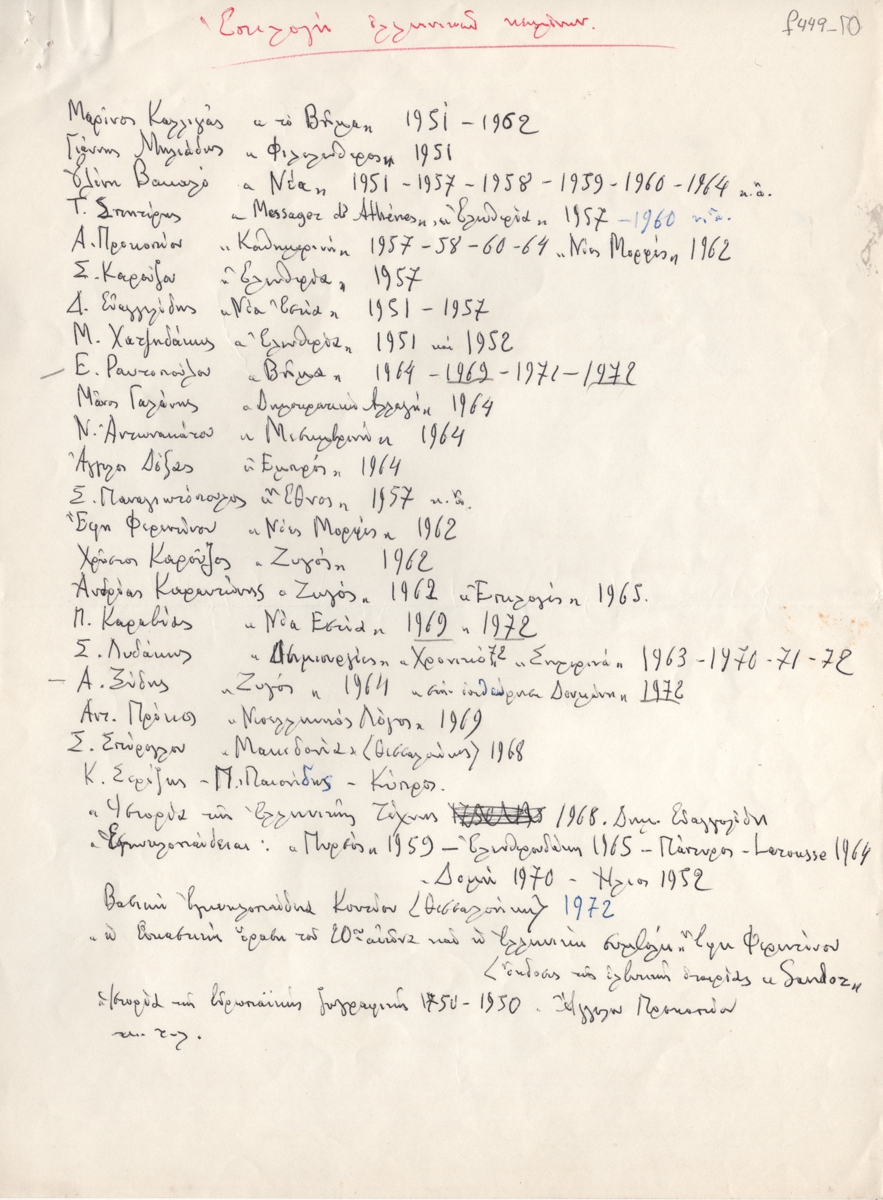 Ἐπιλογὴ ἑλληνικῶν κειμένων.
f449-50
Μαρῖνος Καλλιγᾶς « τὸ Βῆμα » 1951 – 1962
Γιάννης Μηλιάδης « Φιλελεύθερος » 1951
Ἑλένη Βακαλὸ « Νέα » 1951 – 1957 – 1958 – 1959 – 1960 – 1964 κ.ἄ.
Τ. Σπητέρης « Messager d'Athènes », « Ἐλευθερία » 1957 – 1960 κ.ἄ.
Α. Προκοπίου « Καθημερινὴ » 1957 – 58 – 60 – 64 « Νέες Μορφές » 1962
Σ. Καρούζου « Ἐλευθερία » 1957
Δ. Εὐαγγελίδης « Νέα Ἑστία » 1951 – 1957
Μ. Χατζηδάκης « Ἐλευθερία » 1951 καὶ 1952
Ε. Ραυτοπούλου « Βῆμα » 1964 – 1969 – 1971 – 1972
Μᾶνος « Δημοκρατικὴ Ἀλλαγὴ » 1964
Ν. Ἀντωνακάτου « Μεσημβρινὴ » 1964
Ἄγγελος Δόξας « Ἐμπρὸς » 1964
Σ. Παναγιωτόπουλος « Ἔθνος » 1957 κ.ἄ.
Ἔφη Φερεντίνου « Νέες Μορφὲς » 1962
Χρῆστος Καροῦζος « Ζυγὸς » 1962
Ἀνδρέας Καραντώνης « Ζυγὸς » 1962 « Ἐπιλογὲς » 1965.
Π. Καραβίας « Νέα Εστία » 1969 – 1972
Σ. Λυδάκης « Δημιουργίες » « Χρονικὸ 72 » « Σημερινὰ » 1963 – 1970 – 71 – 72
Α. Ξύδης « Ζυγὸς » 1964 « στὴν ἐπιθεώρηση » 1972
Αντ. « Νεοελληνικὸς Λόγος » 1969
Σ. « Μακεδονία » (Θεσσαλονίκης) 1968
Κ. Σερέζης – Π. Παιονίδης – Κύπρος.
« Ἱστορία τῆς Ἑλληνικῆς Τέχνης 1968. Δημ. Εὐαγγελίδη
« Ἐγκυκλοπαίδειαι : « Πυρσὸς » 1959 – Ἐλευθερουδάκη 1965 – Πάπυρος – Larousse 1964
– Δομὴ 1970 – Ἥλιος 1952
Βασικὴ Ἐγκυκλοπαίδεια (Θεσσαλονίκη) 1972
« ἡ Εἰκαστικὴ ὅραση τοῦ 20οῦ αἰῶνα καὶ ἡ Ἑλληνικὴ συμβολὴ » Ἔφη Φερεντίνου
(ἔκδοσις τῆς ἑλβετικῆς ἑταιρίας « Sandoz »
Ἱστορία τῆς Εὐρωπαϊκῆς ζωγραφικῆς 1750 – 1950. Ἀγγέλου Προκοπίου
κ. τ. λ.